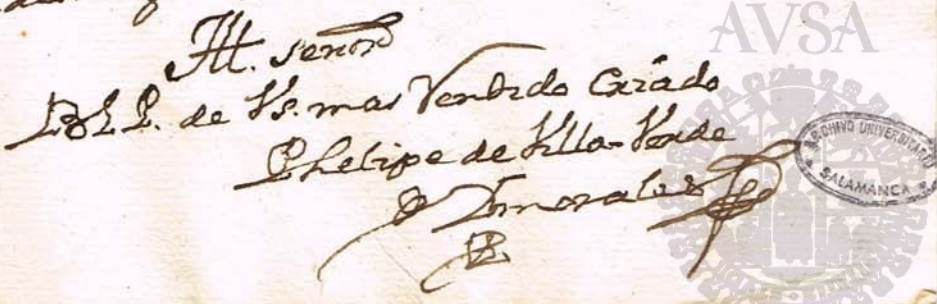 Ill. señor
B L P. de Vs. mas Rendido Criado
Phelipe de Villa-Verde
y Morales
AVSA
ARCHIVO UNIVERSITARIO
SALAMANCA